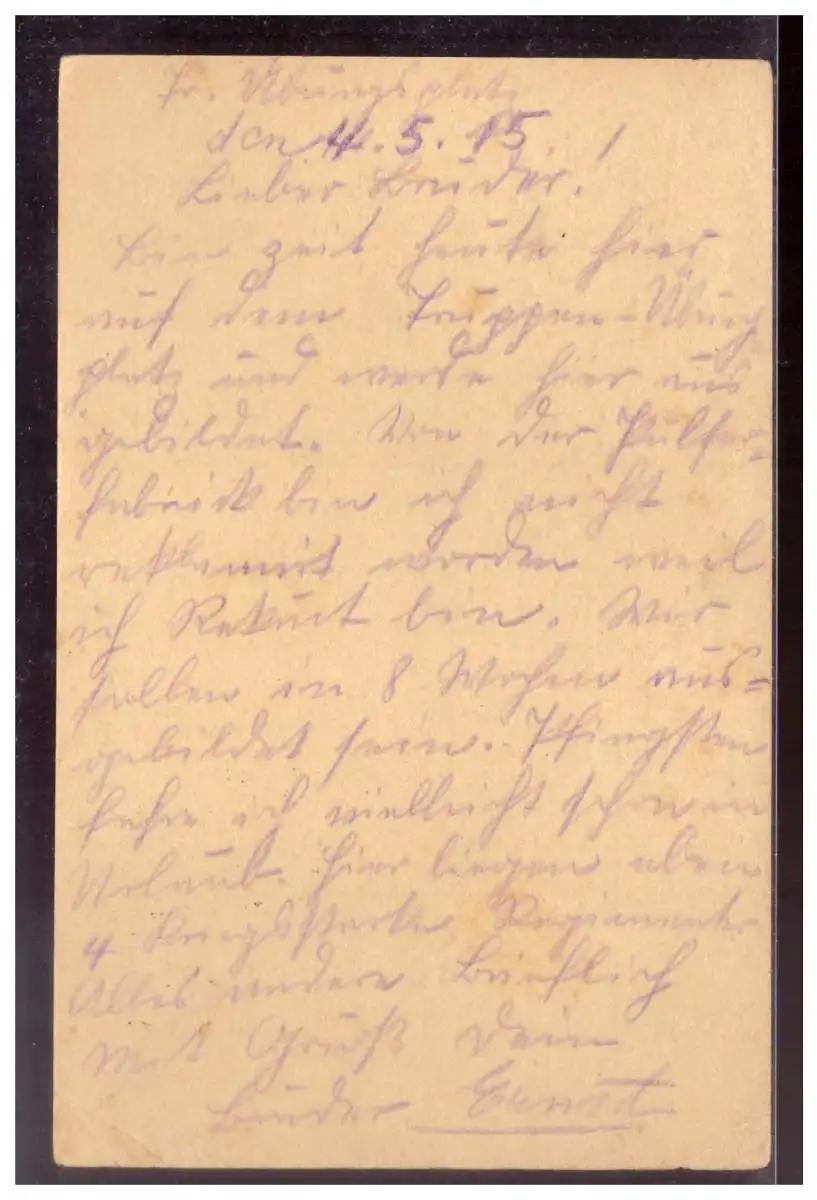 Tr. Übungsplatz
den 4.5.15.
Lieber Bruder!
Bin zeit heute hier
auf dem Truppen-Übung
platz und werde hier aus
gebildet. Von der Pulfer=
fabrick bin ich nicht
reklamirt worden weil
ich Rekrut bin. Wir
sollen in 8 Wochen aus=
gebildet sein. Pfingsten
fahre ich vielleicht schon in
Urlaub. Hier liegen eben
4 Kriegsstarke Regimenter
Alles andere Brieflich
Mit Gruß Dein
Bruder Ernst